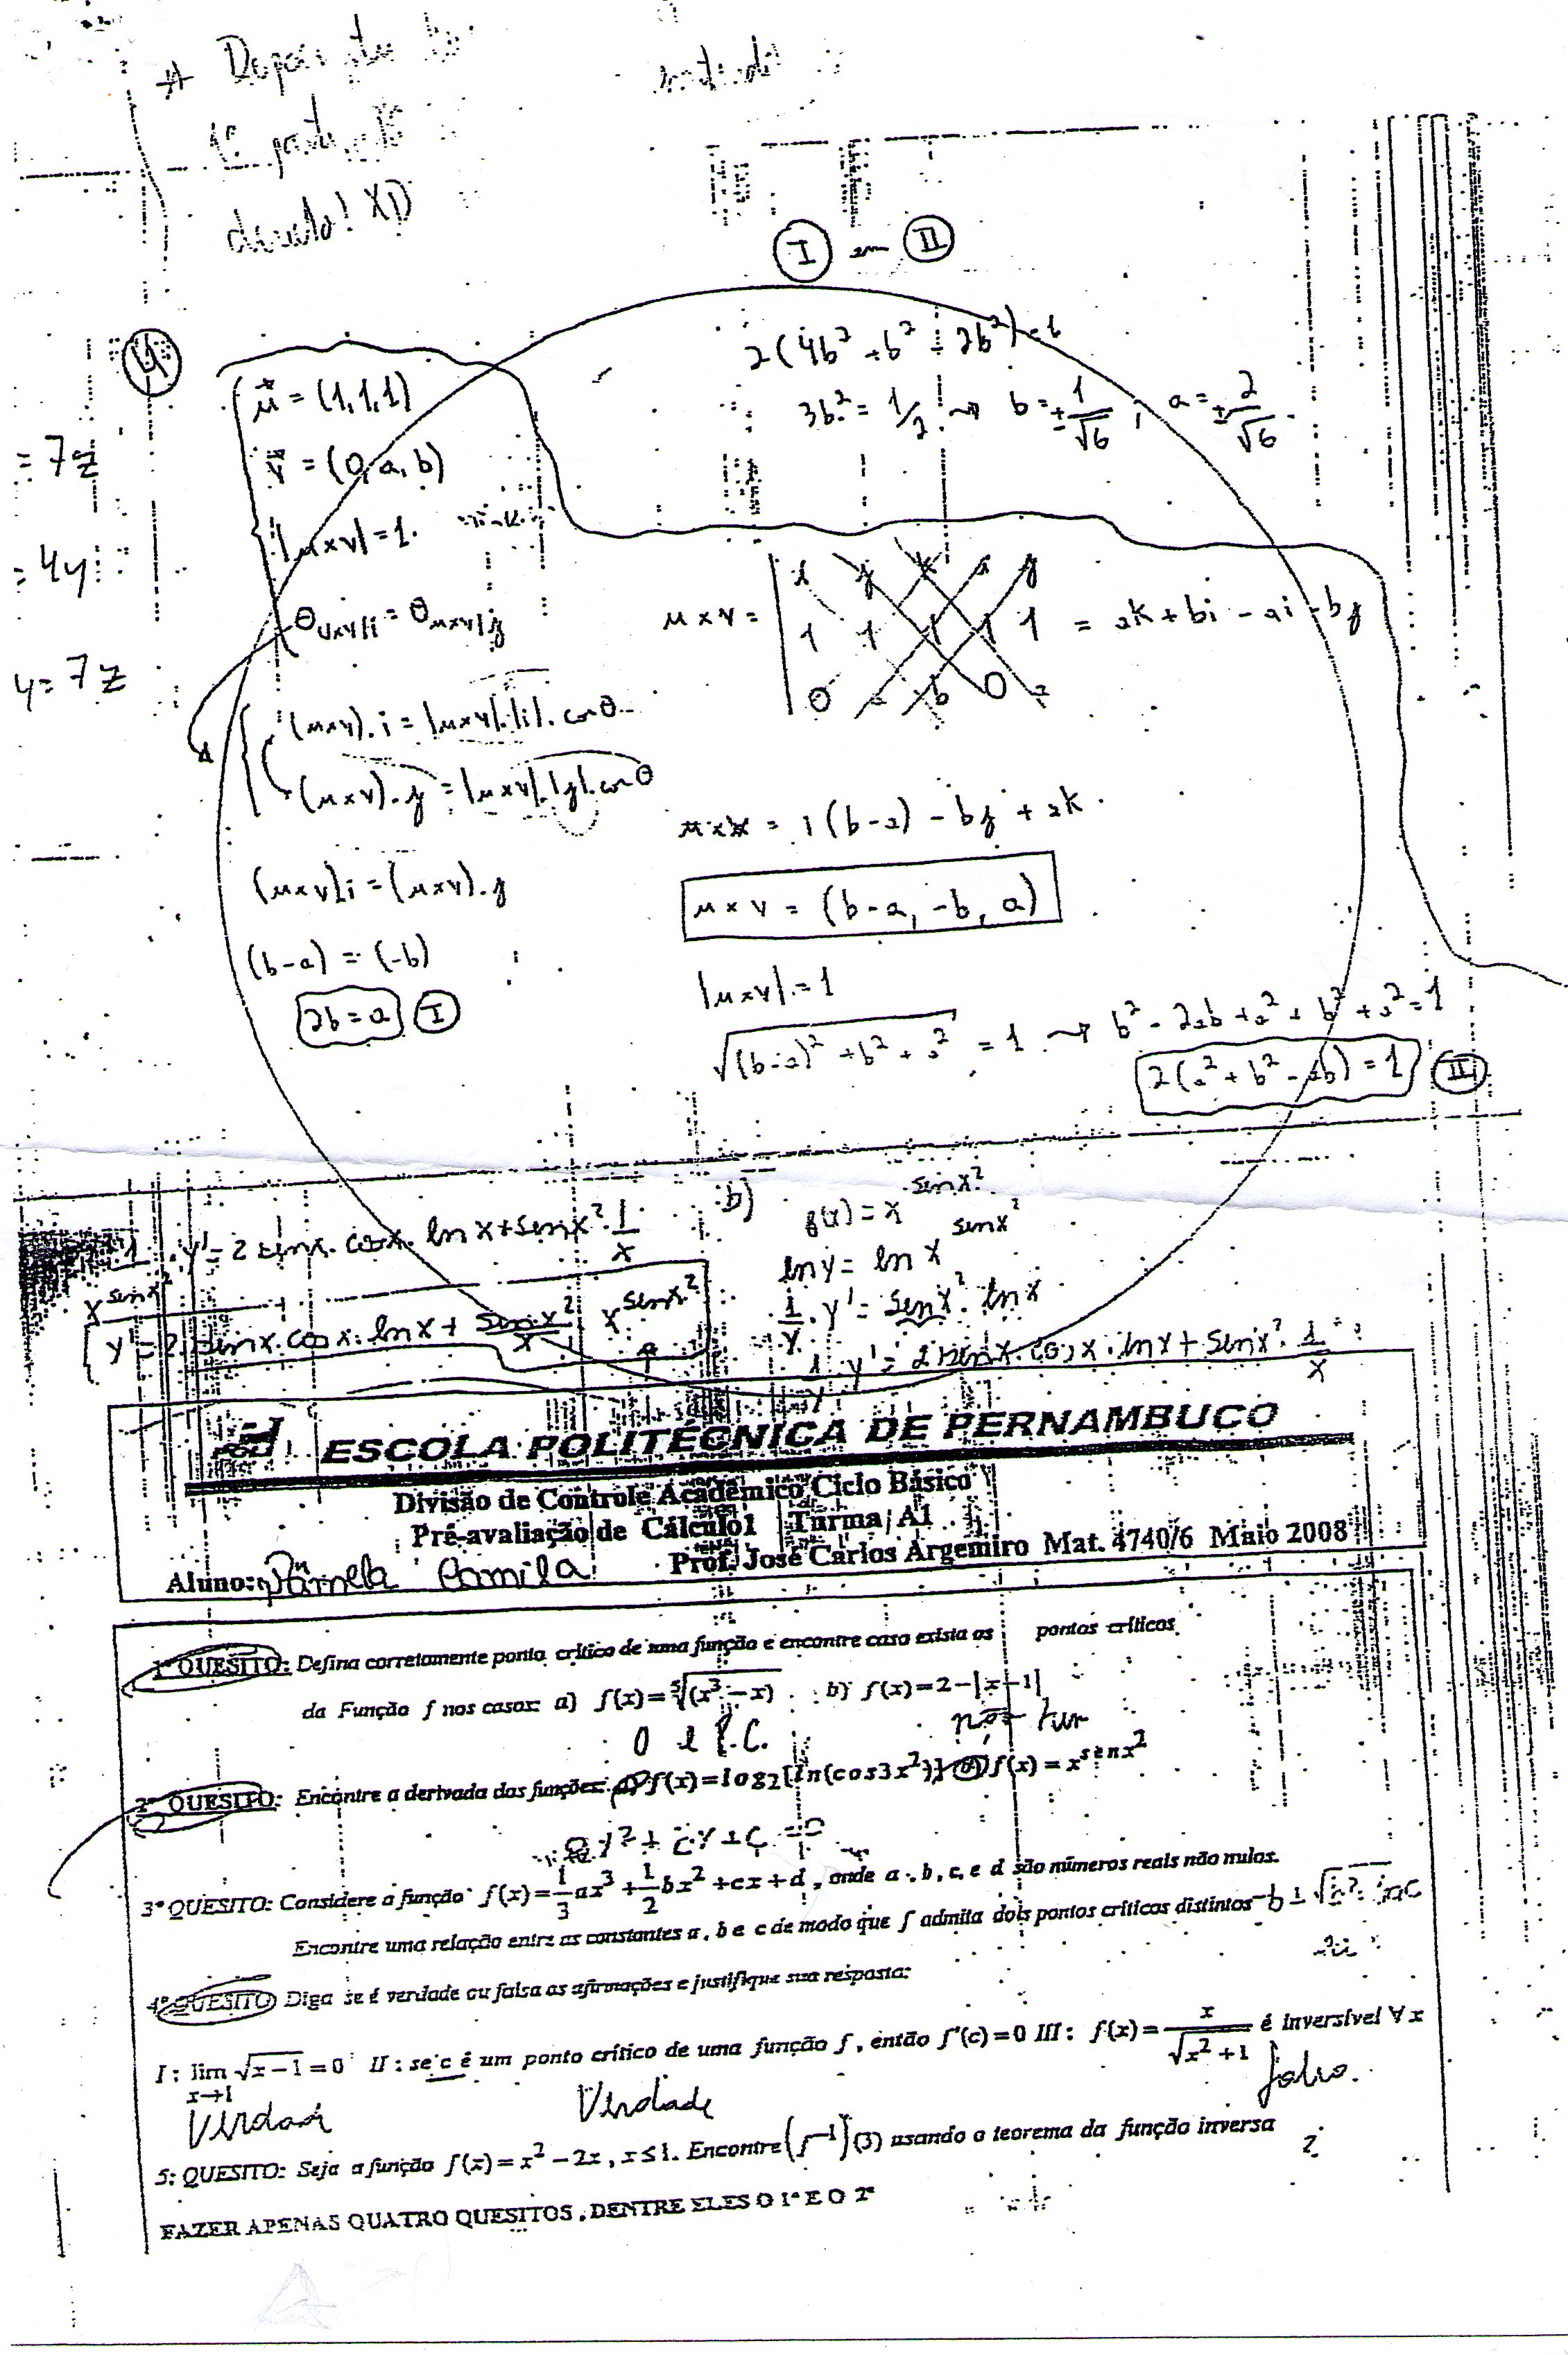 I em II
4
2(4b² + b² - 2b²) = 1
3b² = 1/2 → b = ± 1/√6 ; a = ± 2/√6
μ = (1,1,1)
v = (0,a,b)
|μ×v| = 1.
= 7z
= 4y
y = 7z
θμ×v|i = θμ×v|j
(μ×v).i = |μ×v|.|i|.cosθ
(μ×v).j = |μ×v|.|j|.cosθ
(μ×v)i = (μ×v).j
(b-a) = (-b)
2b = a I
μ×v = | i j k i j
1 1 1 1 1 = ak + bi - ai - bj
0 a b 0 a
μ×v = i(b-a) - bj + ak.
μ×v = (b-a, -b, a)
|μ×v| = 1
√((b-a)² + b² + a²) = 1 → b² - 2ab + a² + b² + a² = 1
2(a² + b² - ab) = 1 II
y' = 2 senx. cosx. ln x + senx². 1/x
x^senx²
y' = 2. senx. cosx. lnx + senx²/x x^senx²
b) f(x) = x^senx²
ln y = ln x^senx²
1/y . y' = senx². lnx
1/y y' = 2 senx. cosx. lnx + senx². 1/x
ESCOLA POLITÉCNICA DE PERNAMBUCO
Divisão de Controle Acadêmico Ciclo Básico
Pré-avaliação de Cálculo1 Turma A1
Prof. José Carlos Argemiro Mat. 4740/6 Maio 2008
Aluno: Pâmela Camila
1º QUESITO: Defina corretamente ponto crítico de uma função e encontre caso exista os pontos críticos
da Função f nos casos: a) f(x) = ⁵√(x³ - x) b) f(x) = 2 - |x - 1|
0 é P.C. não tem
2º QUESITO: Encontre a derivada das funções: a) f(x) = log₂[ln(cos3x²)] b) f(x) = x^senx²
3º QUESITO: Considere a função f(x) = 1/3 ax³ + 1/2 bx² + cx + d, onde a, b, c, e d são números reais não nulos.
Encontre uma relação entre as constantes a, b e c de modo que f admita dois pontos críticos distintos
4º QUESITO Diga se é verdade ou falsa as afirmações e justifique sua resposta:
I: lim x→1 √(x-1) = 0 II: se c é um ponto crítico de uma função f, então f'(c) = 0 III: f(x) = x/√(x²+1) é inversível ∀ x
Verdade Verdade falso.
5: QUESITO: Seja a função f(x) = x² - 2x, x ≤ 1. Encontre (f⁻¹)'(3) usando o teorema da função inversa
FAZER APENAS QUATRO QUESITOS, DENTRE ELES O 1º E O 2º